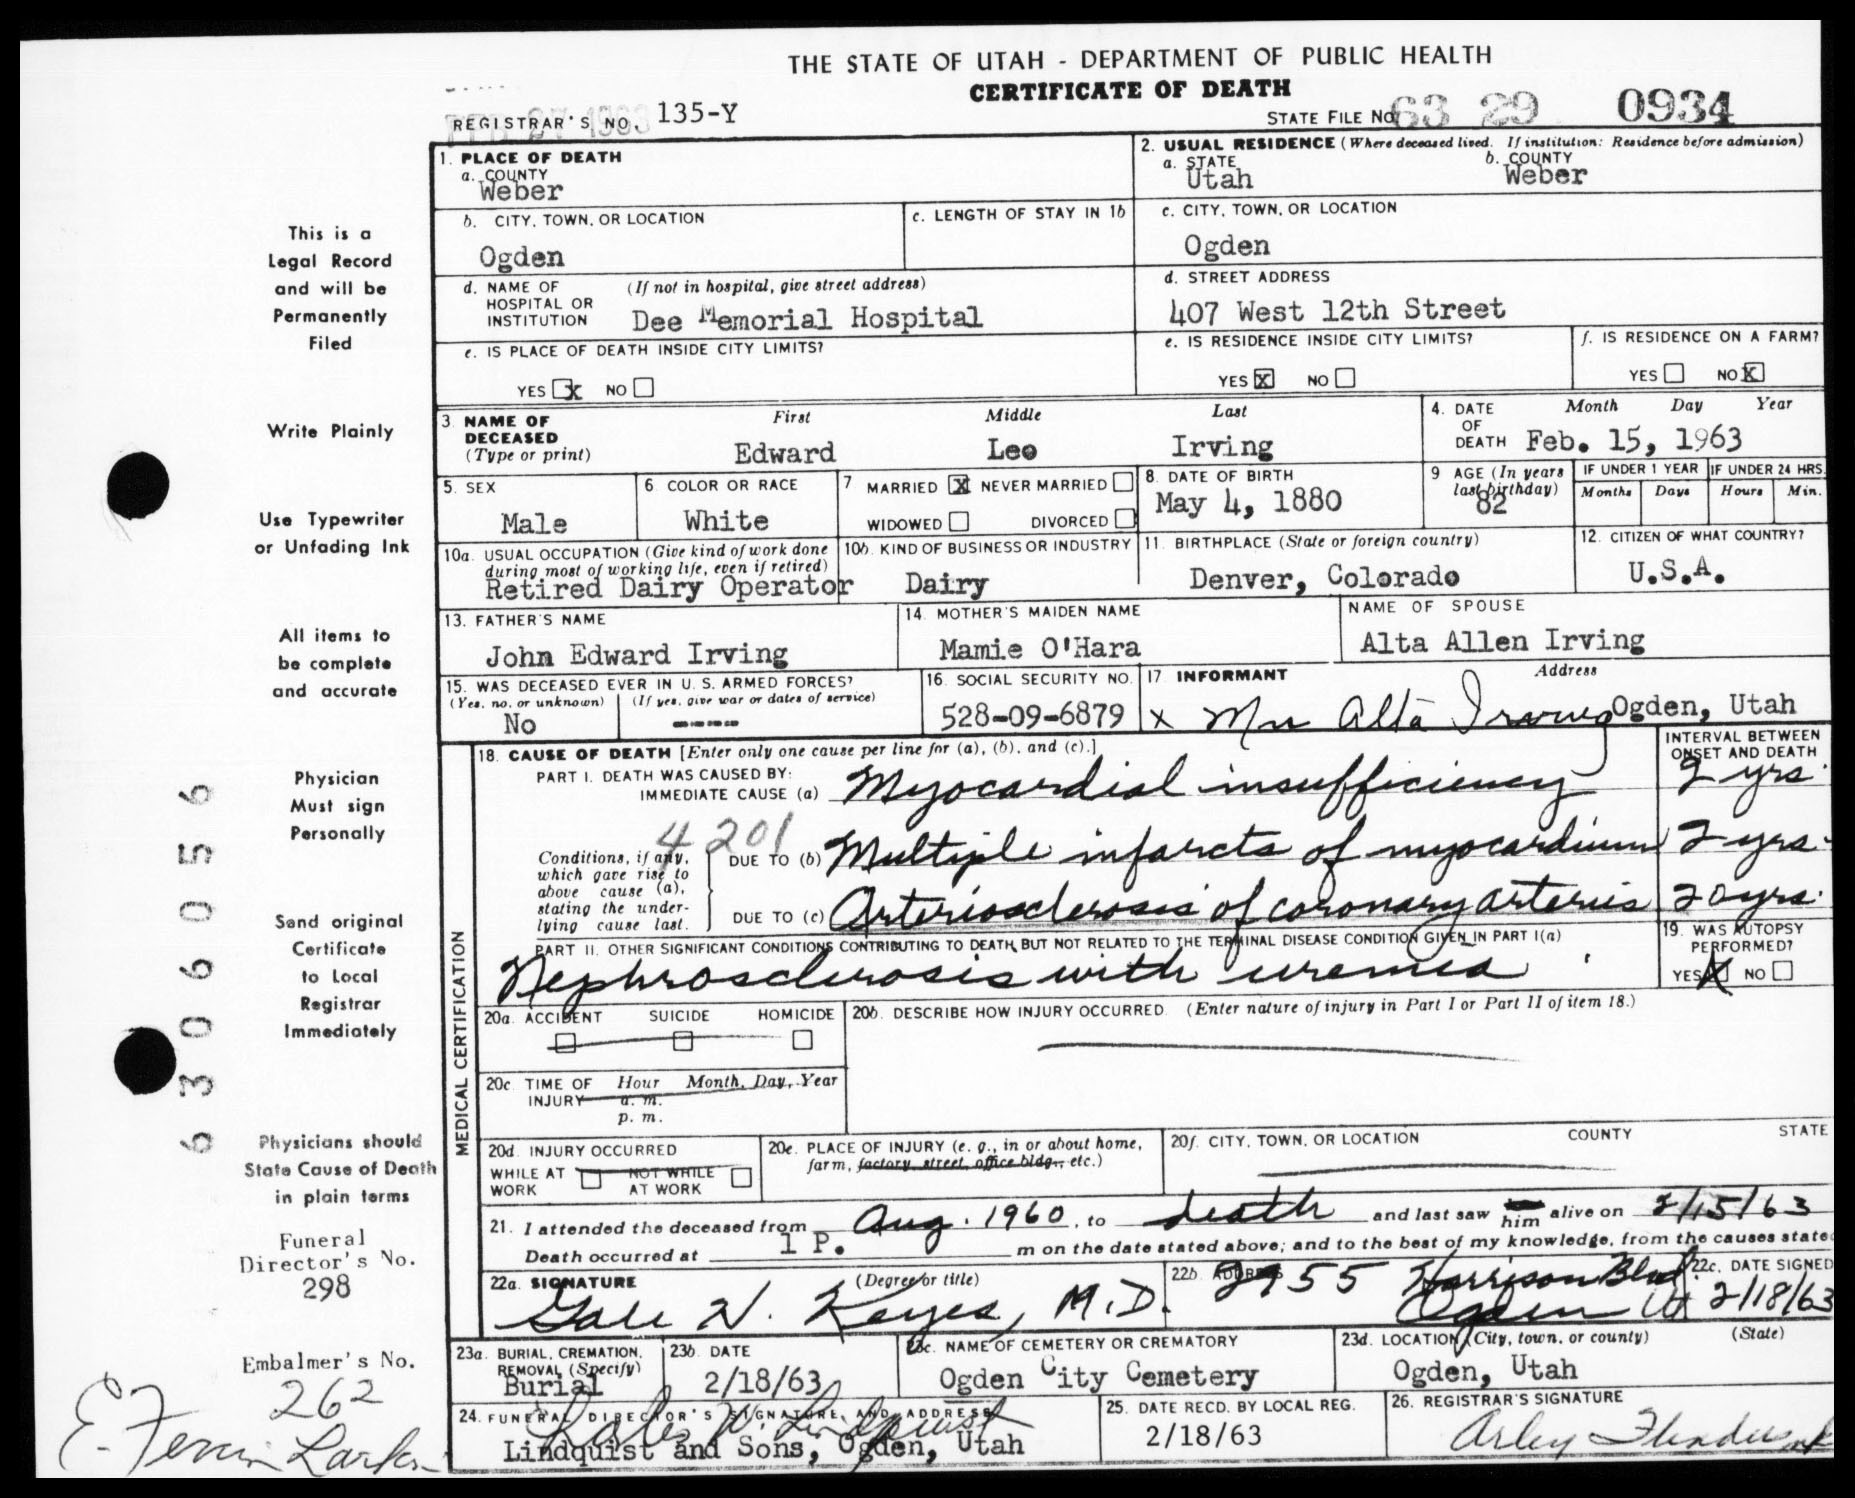 THE STATE OF UTAH - DEPARTMENT OF PUBLIC HEALTH
CERTIFICATE OF DEATH
FEB 27 1963
REGISTRAR'S NO. 135-Y
STATE FILE NO. 63 29 0934
This is a
Legal Record
and will be
Permanently
Filed
Write Plainly
Use Typewriter
or Unfading Ink
All items to
be complete
and accurate
Physician
Must sign
Personally
Send original
Certificate
to Local
Registrar
Immediately
Physicians should
State Cause of Death
in plain terms
Funeral
Director's No.
298
Embalmer's No.
262
E. Larkin
630606056
1. PLACE OF DEATH
a. COUNTY
Weber
2. USUAL RESIDENCE (Where deceased lived. If institution: Residence before admission)
a. STATE b. COUNTY
Utah Weber
b. CITY, TOWN, OR LOCATION
Ogden
c. LENGTH OF STAY IN 1b
c. CITY, TOWN, OR LOCATION
Ogden
d. NAME OF (If not in hospital, give street address)
HOSPITAL OR
INSTITUTION Dee Memorial Hospital
d. STREET ADDRESS
407 West 12th Street
e. IS PLACE OF DEATH INSIDE CITY LIMITS?
YES X NO
e. IS RESIDENCE INSIDE CITY LIMITS?
YES X NO
f. IS RESIDENCE ON A FARM?
YES NO X
3. NAME OF First Middle Last
DECEASED
(Type or print) Edward Leo Irving
4. DATE Month Day Year
OF
DEATH Feb. 15, 1963
5. SEX
Male
6. COLOR OR RACE
White
7 MARRIED X NEVER MARRIED
WIDOWED DIVORCED
8. DATE OF BIRTH
May 4, 1880
9 AGE (In years
last birthday)
82
IF UNDER 1 YEAR IF UNDER 24 HRS.
Months Days Hours Min.
10a. USUAL OCCUPATION (Give kind of work done
during most of working life, even if retired)
Retired Dairy Operator
10b. KIND OF BUSINESS OR INDUSTRY
Dairy
11. BIRTHPLACE (State or foreign country)
Denver, Colorado
12. CITIZEN OF WHAT COUNTRY?
U.S.A.
13. FATHER'S NAME
John Edward Irving
14. MOTHER'S MAIDEN NAME
Mamie O'Hara
NAME OF SPOUSE
Alta Allen Irving
15. WAS DECEASED EVER IN U. S. ARMED FORCES?
(Yes, no, or unknown) (If yes, give war or dates of service)
No ----
16. SOCIAL SECURITY NO.
528-09-6879
17. INFORMANT Address
x Mrs Alta Irving Ogden, Utah
MEDICAL CERTIFICATION
18. CAUSE OF DEATH [Enter only one cause per line for (a), (b), and (c).]
INTERVAL BETWEEN
ONSET AND DEATH
PART I. DEATH WAS CAUSED BY:
IMMEDIATE CAUSE (a) Myocardial insufficiency 2 yrs.
4201
Conditions, if any,
which gave rise to
above cause (a),
stating the under-
lying cause last.
DUE TO (b) Multiple infarcts of myocardium 2 yrs.
DUE TO (c) Arteriosclerosis of coronary arteries 20 yrs.
PART II. OTHER SIGNIFICANT CONDITIONS CONTRIBUTING TO DEATH BUT NOT RELATED TO THE TERMINAL DISEASE CONDITION GIVEN IN PART I(a)
Nephrosclerosis with uremia
19. WAS AUTOPSY
PERFORMED?
YES X NO
20a. ACCIDENT SUICIDE HOMICIDE
20b. DESCRIBE HOW INJURY OCCURRED. (Enter nature of injury in Part I or Part II of item 18.)
20c. TIME OF Hour Month, Day, Year
INJURY a. m.
p. m.
20d. INJURY OCCURRED
WHILE AT NOT WHILE
WORK AT WORK
20e. PLACE OF INJURY (e. g., in or about home,
farm, factory, street, office bldg., etc.)
20f. CITY, TOWN, OR LOCATION COUNTY STATE
21. I attended the deceased from Aug. 1960, to death and last saw him alive on 2/15/63
Death occurred at 1 P. m on the date stated above; and to the best of my knowledge, from the causes stated
22a. SIGNATURE (Degree or title)
Gale N. Keyes, M.D.
22b. ADDRESS 2955 Harrison Blvd.
Ogden Ut
22c. DATE SIGNED
2/18/63
23a. BURIAL, CREMATION,
REMOVAL (Specify)
Burial
23b. DATE
2/18/63
23c. NAME OF CEMETERY OR CREMATORY
Ogden City Cemetery
23d. LOCATION (City, town, or county) (State)
Ogden, Utah
24. FUNERAL DIRECTOR'S SIGNATURE, AND ADDRESS
Lindquist and Sons, Ogden, Utah
25. DATE RECD. BY LOCAL REG.
2/18/63
26. REGISTRAR'S SIGNATURE
Arley